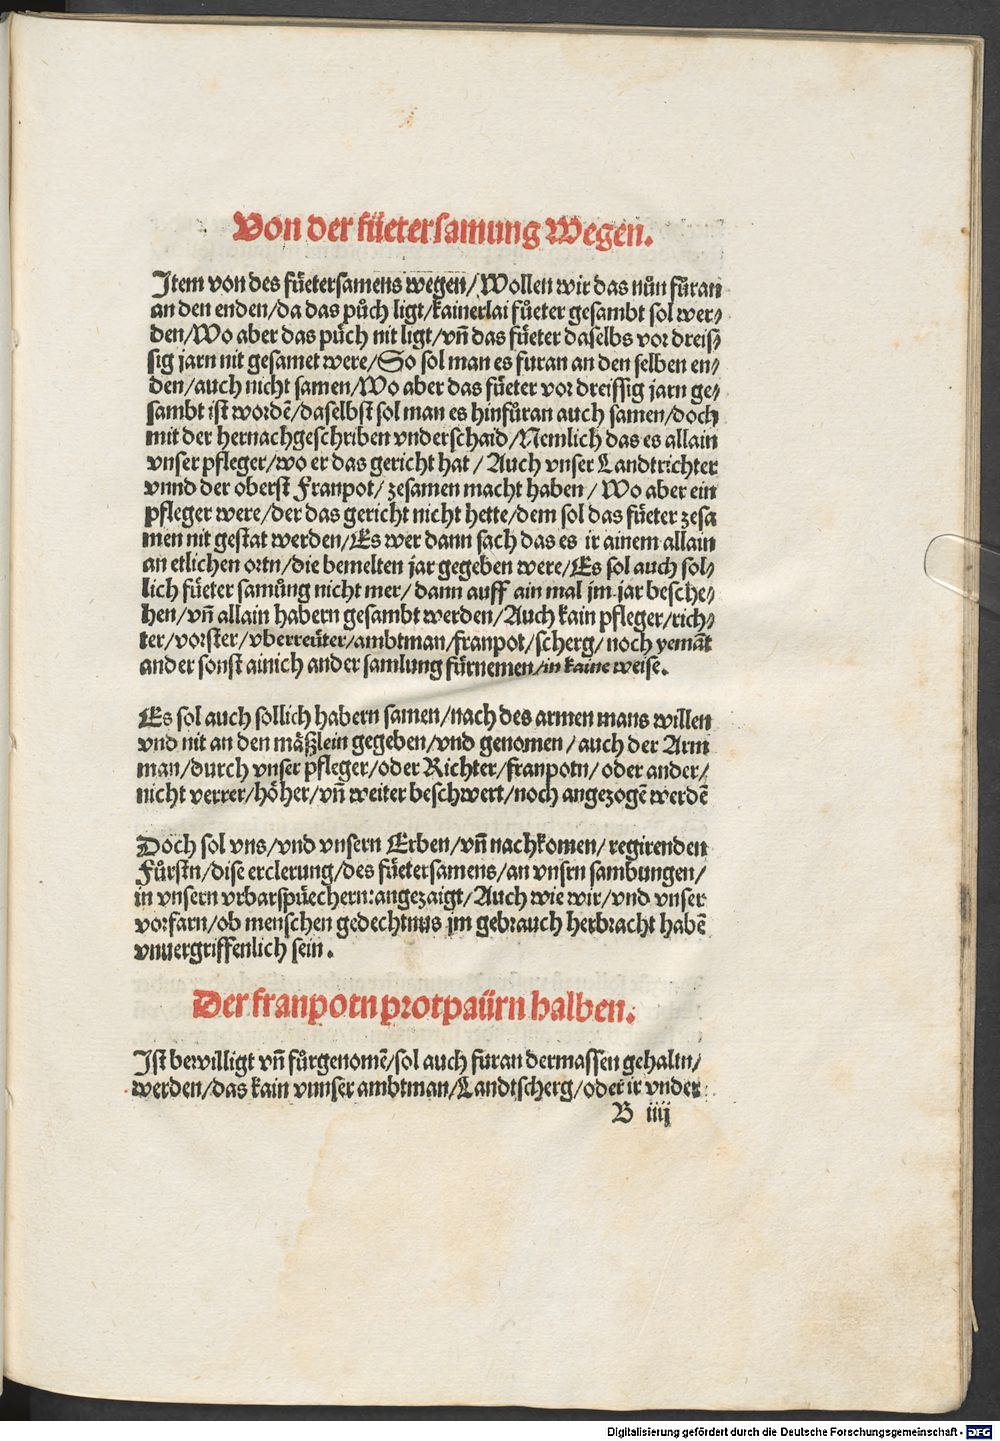 Von der fuͤetersamung Wegen.
Item von des fuͤetersamens wegen/Wollen wir das nuͦn fuͤran
an den enden/da das puͦch ligt/kainerlai fuͦeter gesambt sol wer⸗
den/Wo aber das puͤch nit ligt/vn̄ das fuͤeter daselbs vor dreis⸗
sig jarn nit gesamet were/So sol man es furan an den selben en⸗
den/auch nicht samen/Wo aber das fuͤeter vor dreissig jarn ge⸗
sambt ist wordē/daselbst sol man es hinfuͤran auch samen/doch
mit der hernachgeschriben vnderschaid/Nemlich das es allain
vnser pfleger/wo er das gericht hat/ Auch vnser Landtrichter
vnnd der oberst Franpot/ zesamen macht haben/ Wo aber ein
pfleger were/der das gericht nicht hette/dem sol das fuͤeter zesa
men nit gestat werden/Es wer dann sach das es ir ainem allain
an etlichen ortn/die bemelten jar gegeben were/Es sol auch sol⸗
lich fuͤeter samuͦng nicht mer/ dann auff ain mal jm jar besche⸗
hen/vn̄ allain habern gesambt werden/Auch kain pfleger/rich⸗
ter/vorster/vberreuͤter/ambtman/franpot/scherg/noch yemāt
ander sonst ainich ander samlung fuͤrnemen/in kaine weise.
Es sol auch sollich habern samen/nach des armen mans willen
vnd nit an den maͤßlein gegeben/vnd genomen/ auch der Arm
man/durch vnser pfleger/oder Richter/franpotn/ oder ander/
nicht verrer/hoͤher/vn̄ weiter beschwert/noch angezogē werdē
Doch sol vns/vnd vnsern Erben/vn̄ nachkomen/ regirenden
Fuͤrstn/dise erclerung/des fuͤetersamens/an vnsrn sambungen/
in vnsern vrbarspuͤechern:angezaigt/Auch wie wir/vnd vnser
vorfarn/ob menschen gedechtnus jm gebrauch herbracht habē
vnuergriffenlich sein.
Der franpotn protpauͤrn halben.
Ist bewilligt vn̄ fuͤrgenomē/sol auch furan dermassen gehaltn/
werden/das kain vnnser ambtman/Landtscherg/oder ir vnder
B iiij
Digitalisierung gefördert durch die Deutsche Forschungsgemeinschaft - DFG